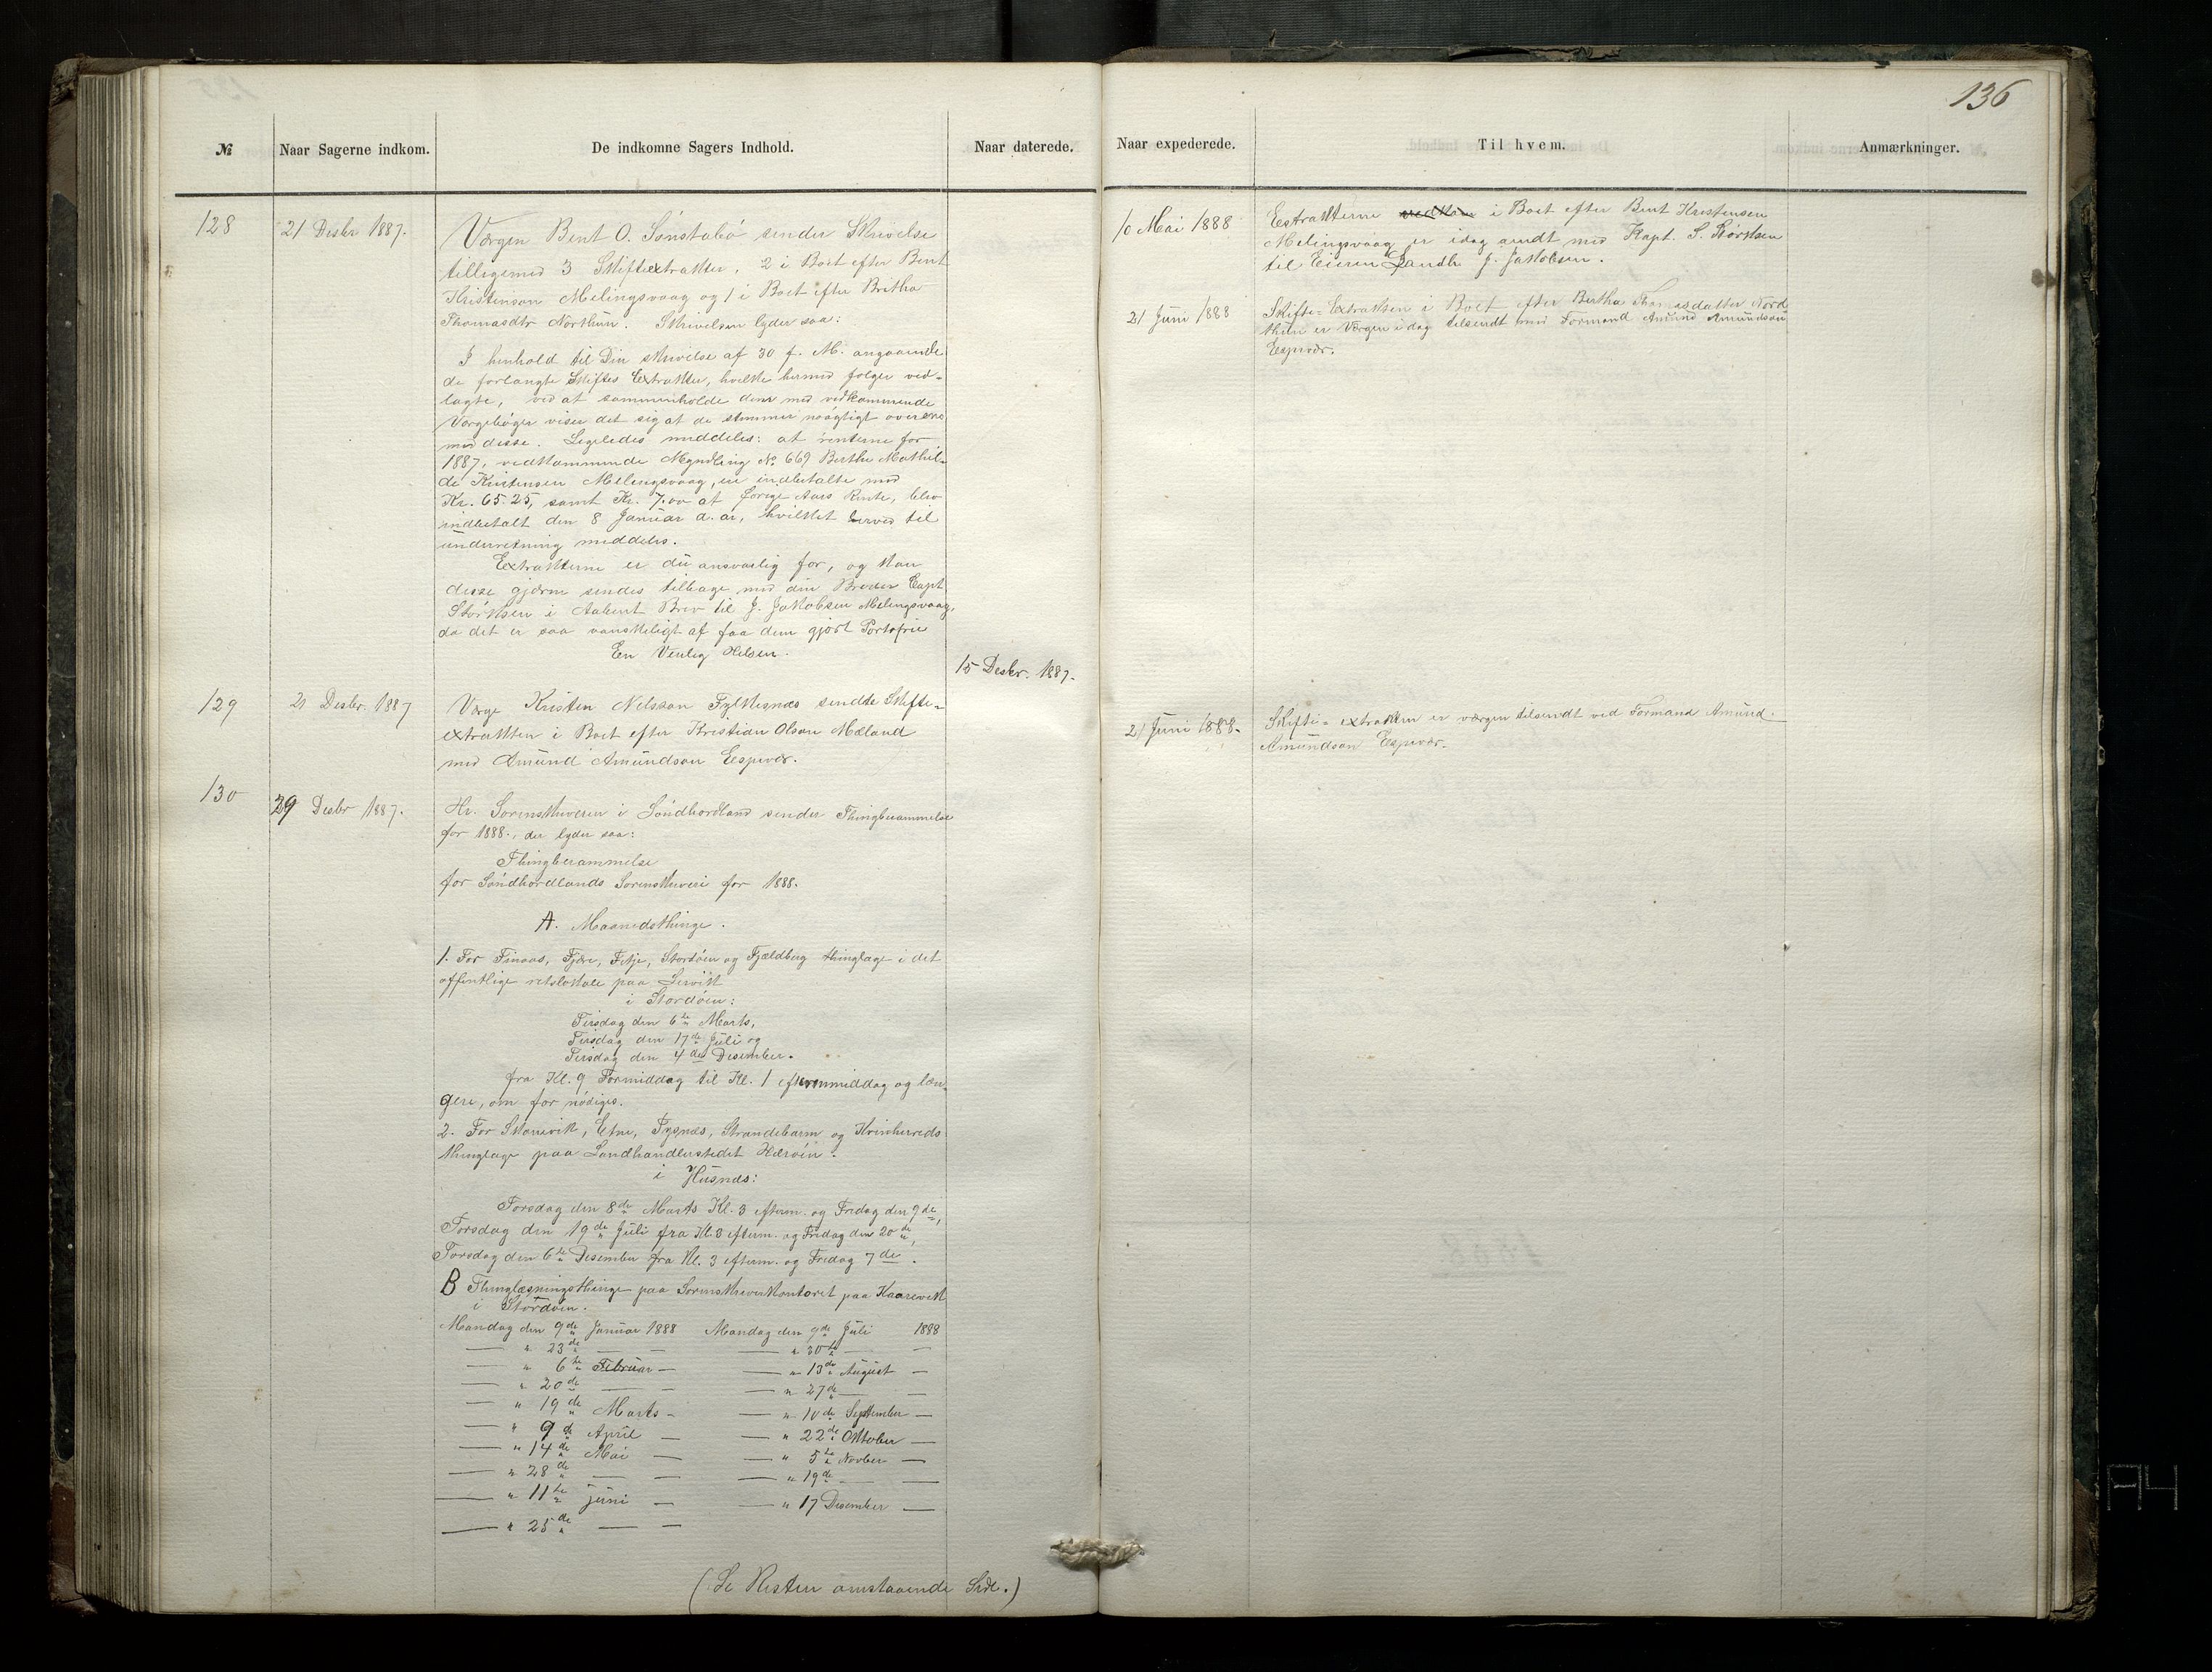 136
№
Naar Sagerne indkom.
De indkomne Sagers Indhold.
Naar daterede.
Naar expederede.
Til hvem.
Anmærkninger.
128
21 Desbr 1887.
Værgen Bent O. Sønstabø sender Skrivelse
tilligemed 3 Skifteextrakter, 2 i Boet efter Bent
Kristenson Melingsvaag og 1 i Boet efter Britha
Thomasdtr Northun. Skrivelsen lyder saa:
I henhold til Din skrivelse af 30 f. M. angaaende
de forlangte Skiftes Extrakter, hvilke hermed følger ved-
lagte, ved at sammenholde dem med vedkommende
Værgebøger viser det sig at de stemmer nøiagtigt overens
med disse. Ligeledes meddeles: at renterne for
1887, vedkommende Myndling No 669 Berthe Mathil-
de Kristensen Melingsvaag, er indbetalte med
Kr. 65.25, samt Kr. 7.00 af forrige Aars Rente, blev
indbetalt den 8 Januar d. ar, hvilket herved til
underretning meddeles.
Extrakterne er du ansvarlig for, og kan
disse gjerne sendes tilbage med din Broder Capt
Størksen i Aabent Brev til J. Jakobsen Melingsvaag,
da det er saa vanskeligt af faa dem gjort Portofrie
En Venlig Hilsen.
15 Desbr. 1887.
10 Mai 1888
Extrakterne i Boet efter Bent Kristensen
Melingsvaag er idag sendt med Kapt. S. Størksen
til Eieren Landh. J. Jakobsen.
21 Juni 1888
Skifte-Extrakten i Boet efter Bertha Thomasdatter Nord
thun er Værgen i dag tilsendt med Formand Amund Amundson
Espevær.
129
21 Desbr. 1887
Værge Kristen Nelsson Fylkesnæs sendte Skifte-
extrakten i Boet efter Kristian Olson Mæland
med Amund Amundson Espevær.
21 Juni 1888.
Skifte-extrakten er værgen tilsendt ved Formand Amund
Amundson Espevær.
130
29 Desbr 1887.
Hr. Sorenskriveren i Søndhordland sender Thingberammelse
for 1888, der lyder saa:
Thingberammelse
for Søndhordlands Sorenskriveri for 1888.
A. Maanedsthinge.
1. For Finaas, Fjære, Fitje, Stordøen og Fjeldberg thinglage i det
offentlige retslokale paa Lervik
i Stordøen:
Tirsdag den 6te Marts,
Tirsdag den 17de Juli og
Tirsdag den 4de Desember.
fra Kl. 9 Formiddag til Kl. 1 eftermiddag og læn-
gere, om for nødiges.
2. For Skonevik, Etne, Tysnæs, Strandebarm og Kvinherreds
thinglage paa Landhandlerstedet Herøen
i Husnæs:
Torsdag den 8de Marts Kl. 3 efterm. og Fredag den 9de,
Torsdag den 19de Juli fra Kl. 3 efterm. og Fredag den 20de,
Torsdag den 6te Desember fra Kl. 3 efterm. og Fredag 7de.
B Thinglæsningsthinge paa Sorenskriverkontoret paa Kaarevik
i Stordøen.
Mandag den 9de Januar 1888 Mandag den 9de Juli 1888
— " 23de — — — " 30te — —
— " 6te Februar — — " 13de August —
— " 20de — — — " 27de — —
— " 19de Marts — — " 10de September —
— " 9de April — — " 22de Oktober —
— " 14de Mai — — " 5te Novber —
— " 28de — — — " 19de — —
— " 11te juni — — " 17 Desember —
— " 25de — —
(Se Resten omstaaende Side.)